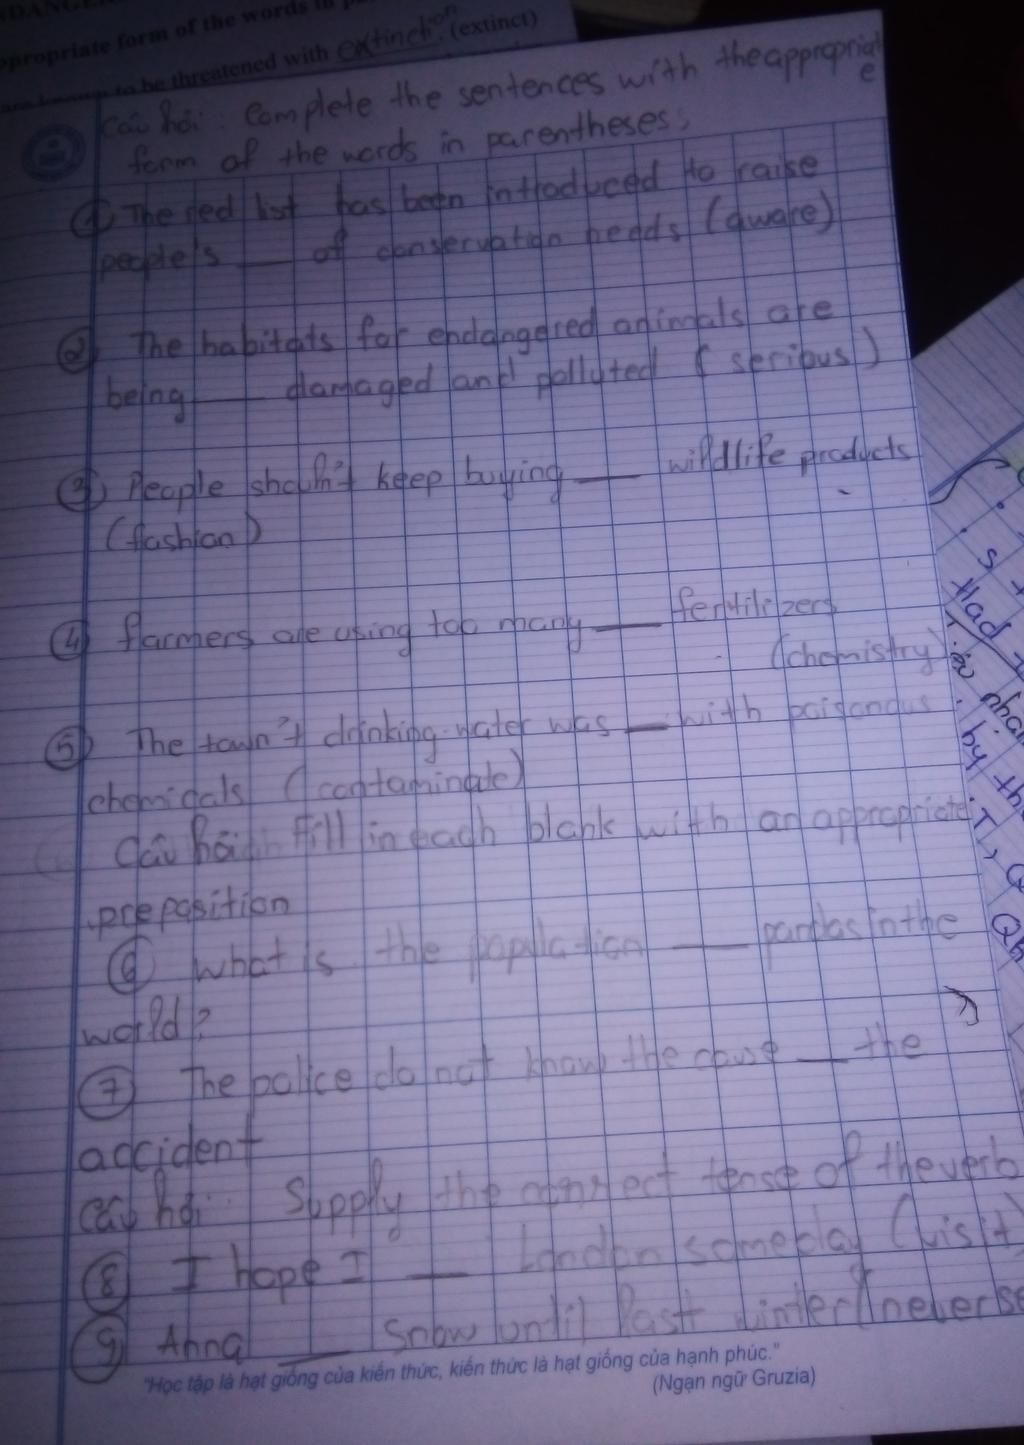 propriate form of the words in
to be threatened with extinction. (extinct)
Câu hỏi: Complete the sentences with the appropriate
form of the words in parentheses;
① The red list has been introduced to raise
people's ___ of conservation needs (aware)
② The habitats for endangered animals are
being ___ damaged and polluted (serious)
③ People shoul't keep buying ___ wildlife products
(fashion)
④ farmers are using too many ___ fertilizers
(chemistry)
⑤ The town't drinking-water was ___ with poisonous
chemicals (contaminate)
Câu hỏi: Fill in each blank with an appropriate
preposition
⑥ What is the population ___ pandas in the
world?
⑦ The police do not know the cause ___ the
accident
câu hỏi: Supply the correct tense of the verb
⑧ I hope I ___ London someday (visit)
⑨ Anna ___ snow until last winter (never se
"Học tập là hạt giống của kiến thức, kiến thức là hạt giống của hạnh phúc."
(Ngạn ngữ Gruzia)
s
Had
by th